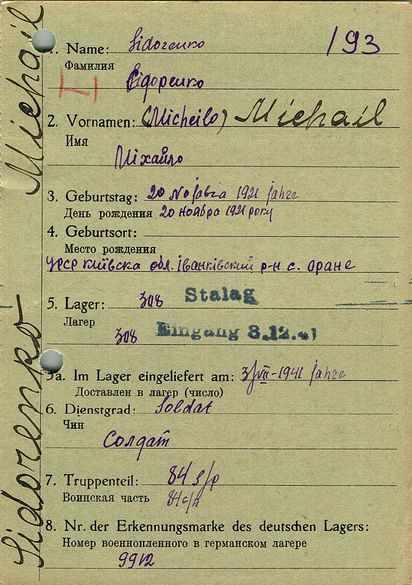 Sidorenko Michail
1. Name: Sidorenko 193
Фамилия
Сідоренко
2. Vornamen: (Micheilo) Michail
Имя
Міхайло
3. Geburtstag: 20 Nojabra 1921 jahre
День рождения 20 ноября 1921 року
4. Geburtsort:
Место рождения
УРСР Київска обл. Іванківский р-н с. Оране
5. Lager: 308 Stalag
Лагер 308 Eingang 8.12.41
5a. Im Lager eingeliefert am: 3/VIII-1941 jahre
Доставлен в лагер (число)
6. Dienstgrad: Soldat
Чин
Солдат
7. Truppenteil: 84
Воинская часть 84
8. Nr. der Erkennungsmarke des deutschen Lagers:
Номер военнопленного в германском лагере
9912